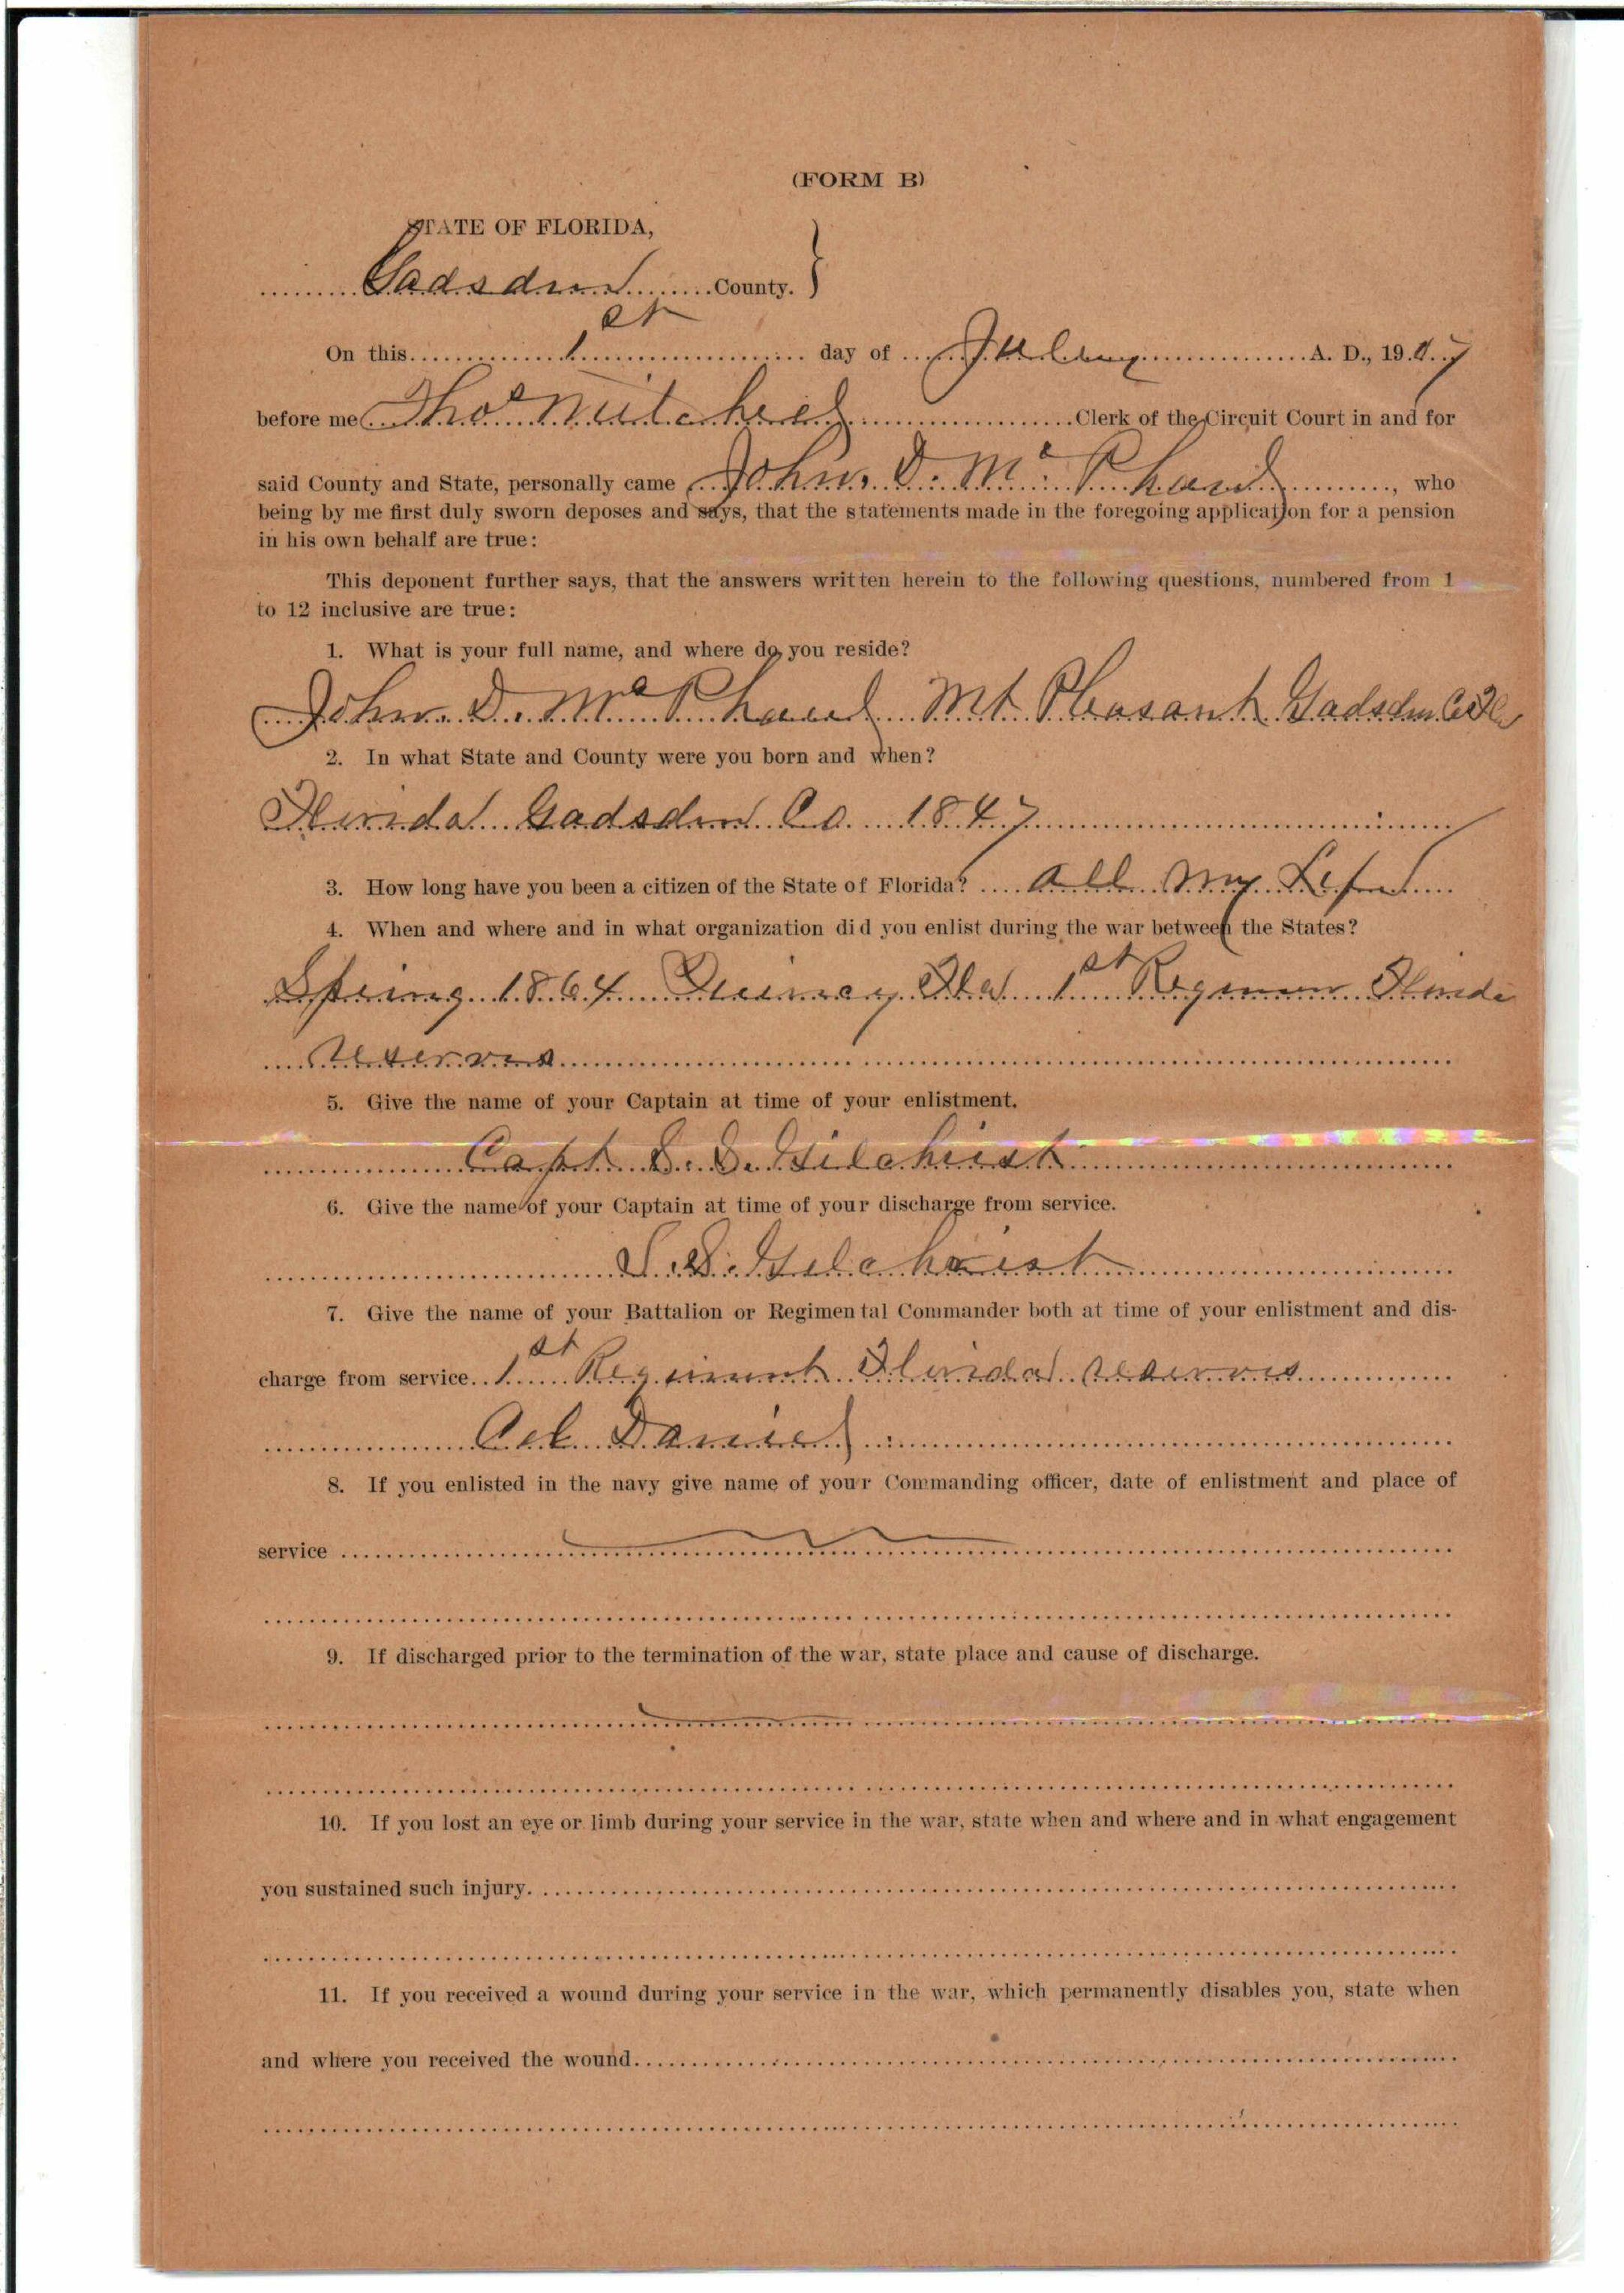 (FORM B)
STATE OF FLORIDA,
Gadsden County.
On this 1st day of July A. D., 1907
before me Thos Mitchell Clerk of the Circuit Court in and for
said County and State, personally came John. D. Mc Phaul, who
being by me first duly sworn deposes and says, that the statements made in the foregoing application for a pension
in his own behalf are true:
This deponent further says, that the answers written herein to the following questions, numbered from 1
to 12 inclusive are true:
1. What is your full name, and where do you reside?
John. D. Mc Phaul Mt Pleasant Gadsden Co Fla
2. In what State and County were you born and when?
Florida Gadsden Co. 1847
3. How long have you been a citizen of the State of Florida? All My Life
4. When and where and in what organization did you enlist during the war between the States?
Spring 1864 Quincy Fla 1st Regimen Florida
reserves
5. Give the name of your Captain at time of your enlistment.
Capt S. S. Gilchrist
6. Give the name of your Captain at time of your discharge from service.
S. S. Gilchrist
7. Give the name of your Battalion or Regimental Commander both at time of your enlistment and dis-
charge from service. 1st Regiment Florida reserves
Col Daniel
8. If you enlisted in the navy give name of your Commanding officer, date of enlistment and place of
service
9. If discharged prior to the termination of the war, state place and cause of discharge.
10. If you lost an eye or limb during your service in the war, state when and where and in what engagement
you sustained such injury.
11. If you received a wound during your service in the war, which permanently disables you, state when
and where you received the wound.